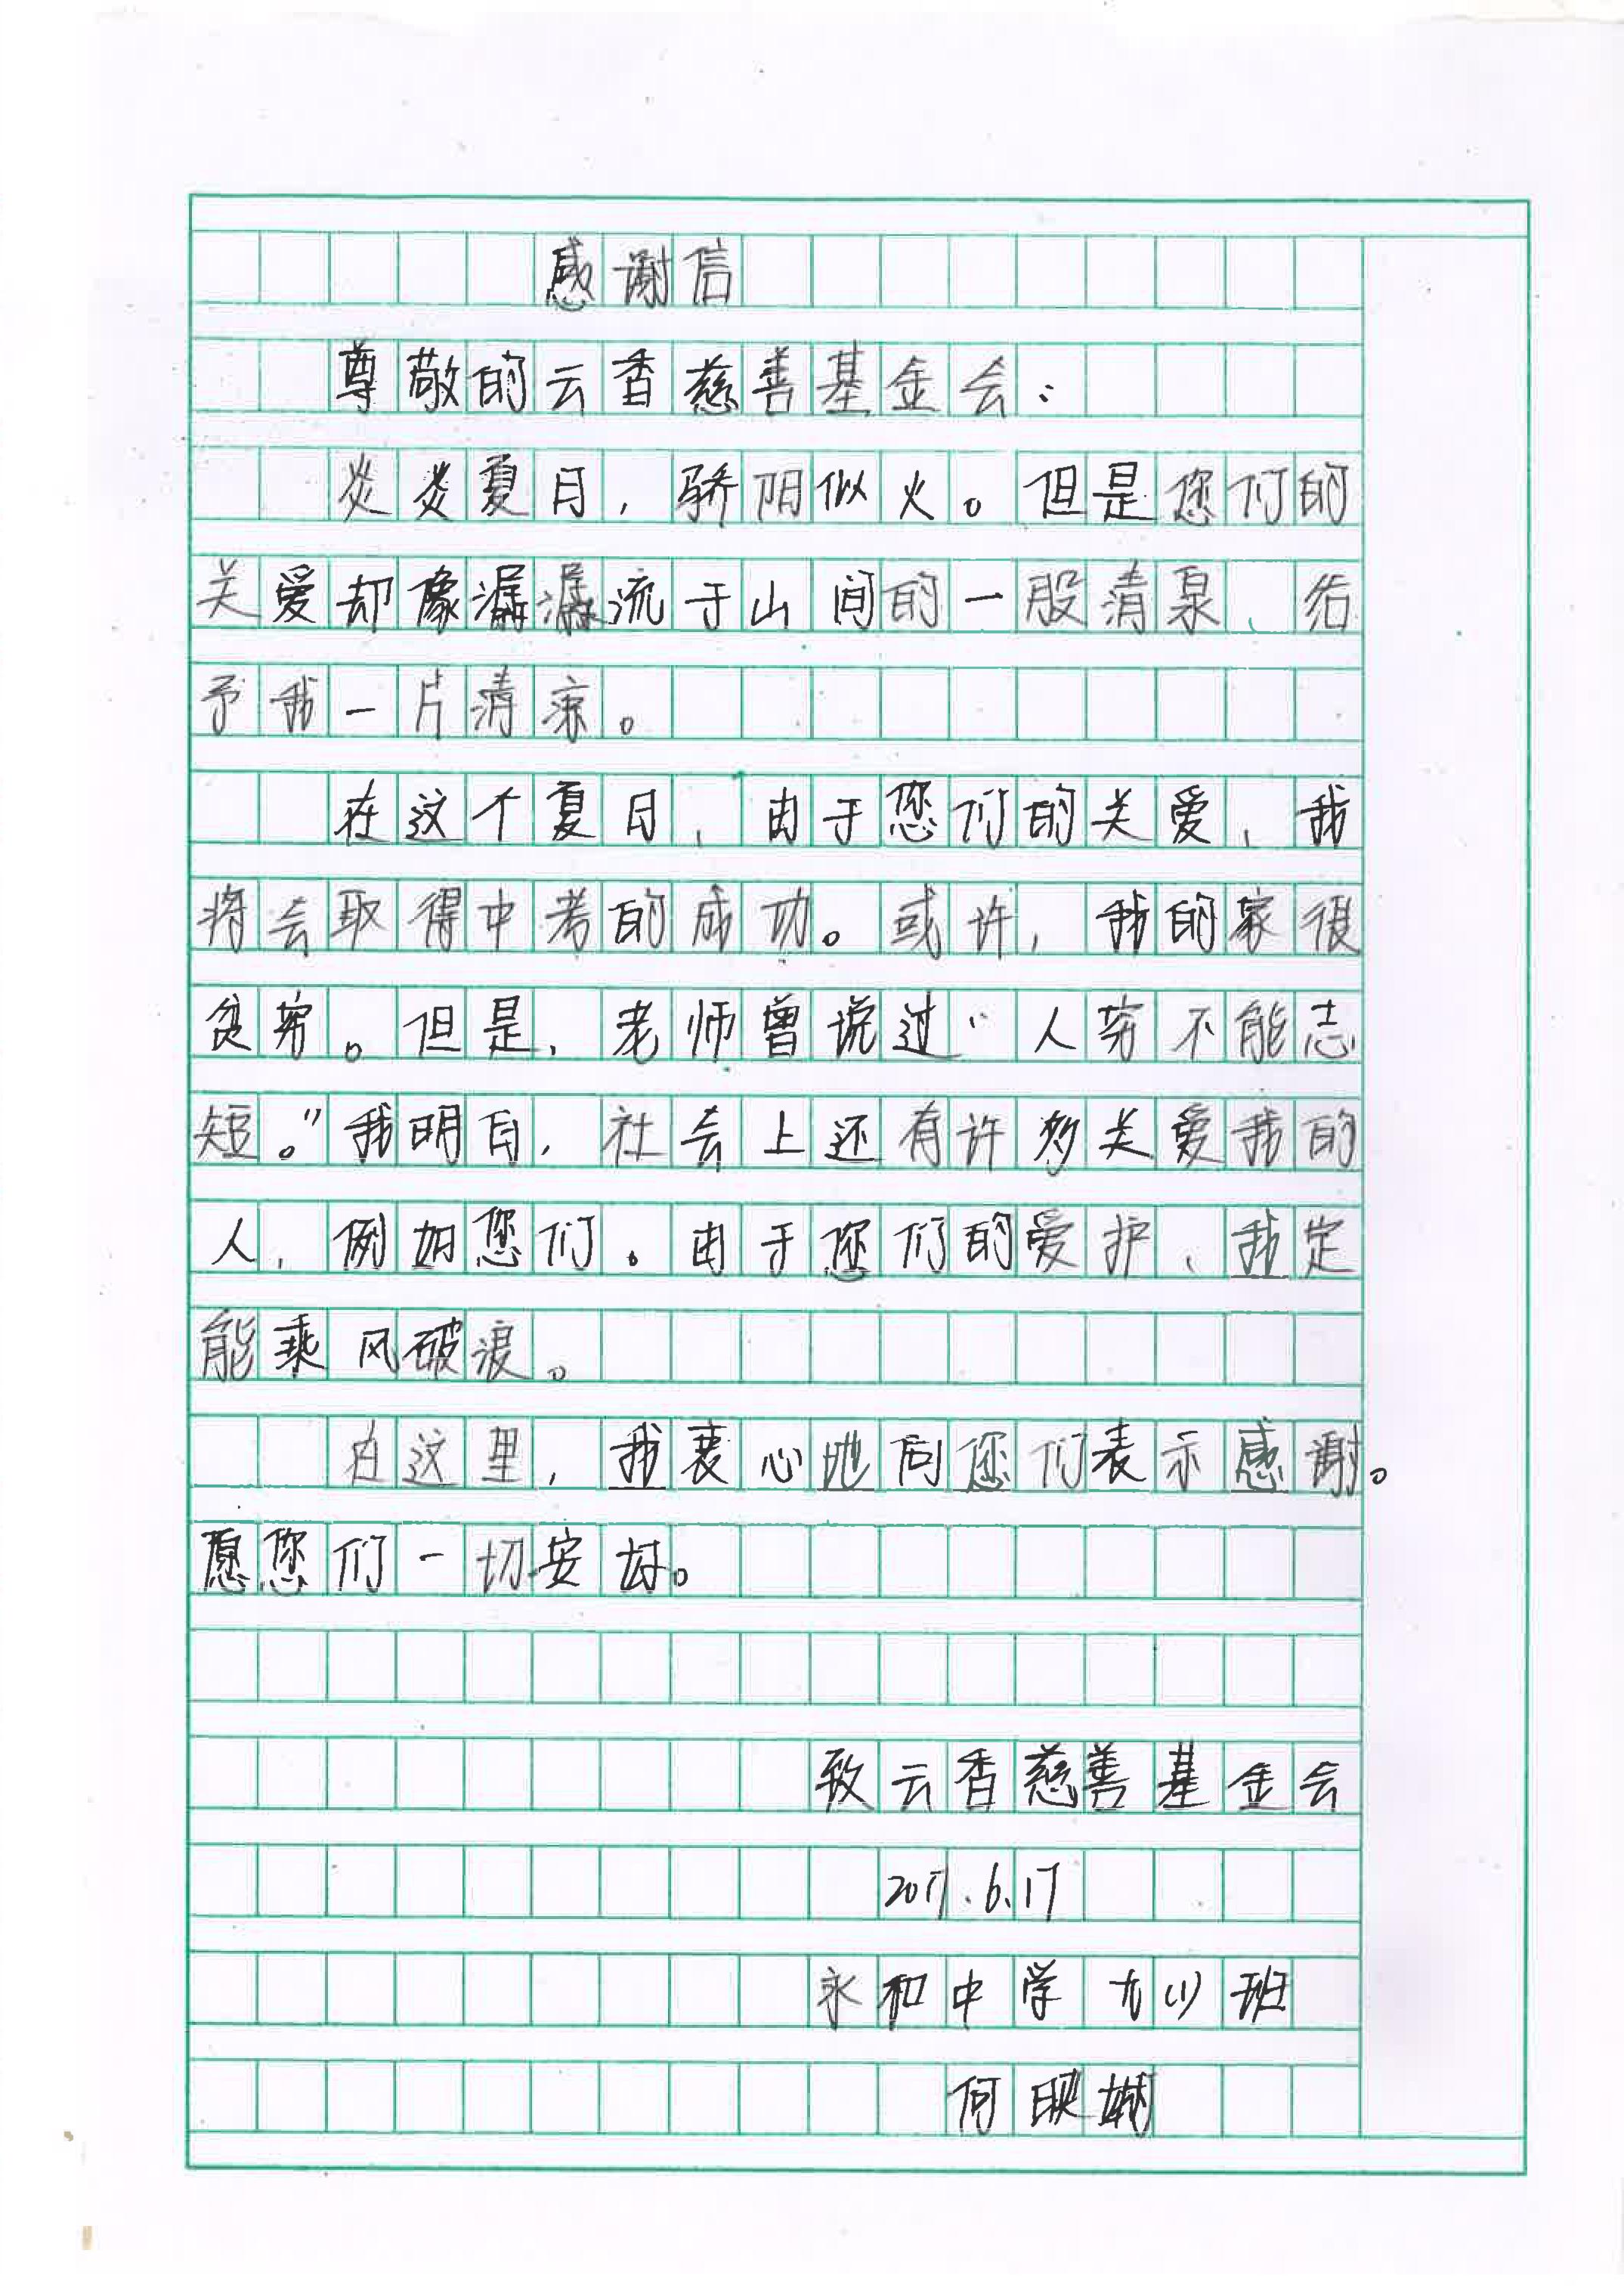 感谢信
尊敬的云香慈善基金会：
炎炎夏日，骄阳似火。但是您们的
关爱却像潺潺流于山间的一股清泉、给
予我一片清凉。
在这个夏日，由于您们的关爱，我
将会取得中考的成功。或许，我的家很
贫穷。但是，老师曾说过“人穷不能志
短。”我明白，社会上还有许多关爱我的
人，例如您们。由于您们的爱护、我定
能乘风破浪。
在这里，我衷心地向您们表示感谢。
愿您们一切安好。
致云香慈善基金会
2017.6.17
永和中学九(1)班
何映